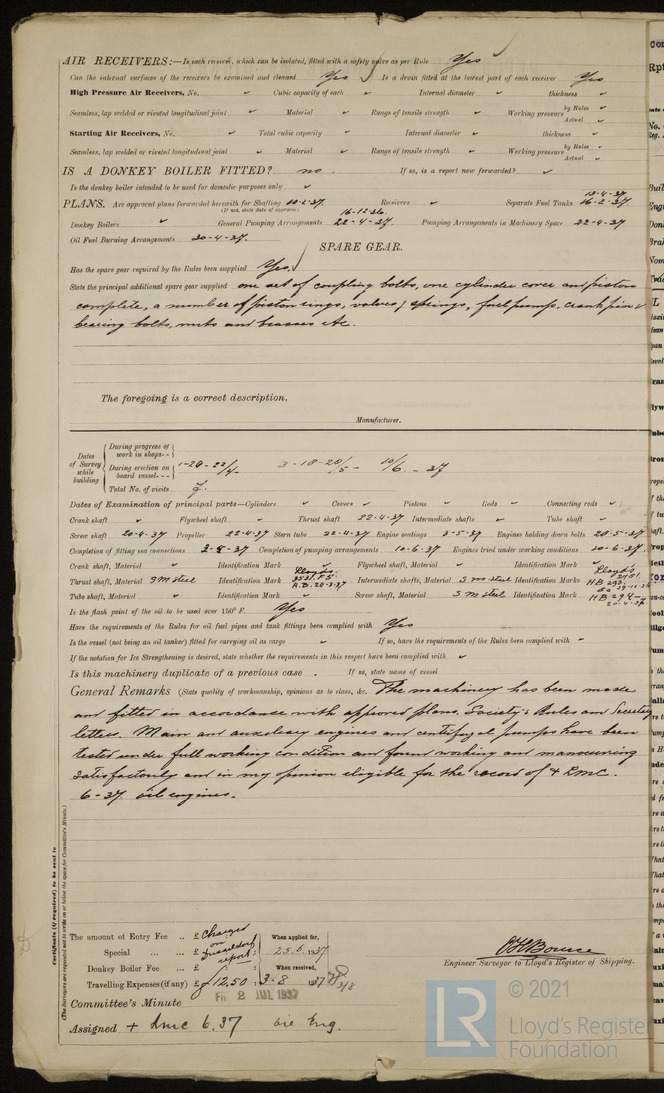 AIR RECEIVERS:—Is each receiver, which can be isolated, fitted with a safety valve as per Rule Yes
Can the internal surfaces of the receivers be examined and cleaned Yes Is a drain fitted at the lowest part of each receiver Yes
High Pressure Air Receivers, No. ✓ Cubic capacity of each ✓ Internal diameter ✓ thickness ✓
Seamless, lap welded or riveted longitudinal joint ✓ Material ✓ Range of tensile strength ✓ Working pressure by Rules ✓ Actual ✓
Starting Air Receivers, No. ✓ Total cubic capacity ✓ Internal diameter ✓ thickness ✓
Seamless, lap welded or riveted longitudinal joint ✓ Material ✓ Range of tensile strength ✓ Working pressure by Rules ✓ Actual ✓
IS A DONKEY BOILER FITTED? no. If so, is a report now forwarded? ✓
Is the donkey boiler intended to be used for domestic purposes only ✓
PLANS. Are approved plans forwarded herewith for Shafting 10-2-37. Receivers ✓ Separate Fuel Tanks 16-2-37
(If not, state date of approval)
Donkey Boilers ✓ General Pumping Arrangements 16-12-36. 22-4-37. Pumping Arrangements in Machinery Space 22-4-37
Oil Fuel Burning Arrangements 20-4-37.
SPARE GEAR.
Has the spare gear required by the Rules been supplied Yes.
State the principal additional spare gear supplied one set of coupling bolts, one cylinder cover and piston
complete, a number of piston rings, valves, springs, fuel pumps, crank pin &
bearing bolts, nuts and brasses etc.
The foregoing is a correct description,
Manufacturer.
Dates of Survey while building
During progress of work in shops--
During erection on board vessel--- 1-20-22/4- 3-18-20/5- 10/6. - 37
Total No. of visits 7.
Dates of Examination of principal parts—Cylinders ✓ Covers ✓ Pistons ✓ Rods ✓ Connecting rods ✓
Crank shaft ✓ Flywheel shaft ✓ Thrust shaft 22-4-37 Intermediate shafts ✓ Tube shaft ✓
Screw shaft 20-4-37 Propeller 22-4-37 Stern tube 22-4-37 Engine seatings 3-5-37 Engines holding down bolts 20-5-37
Completion of fitting sea connections Completion of pumping arrangements 10-6-37 Engines tried under working conditions 10-6-37.
Crank shaft, Material ✓ Identification Mark ✓ Flywheel shaft, Material ✓ Identification Mark ✓
Thrust shaft, Material S M Steel Identification Mark Lloyd's Intermediate shafts, Material S m steel Identification Marks Lloyd's
Tube shaft, Material ✓ Identification Mark ✓ Screw shaft, Material S m steel Identification Mark HB 294
Is the flash point of the oil to be used over 150° F. Yes
Have the requirements of the Rules for oil fuel pipes and tank fittings been complied with Yes
Is the vessel (not being an oil tanker) fitted for carrying oil as cargo ✓ If so, have the requirements of the Rules been complied with ✓
If the notation for Ice Strengthening is desired, state whether the requirements in this respect have been complied with ✓
Is this machinery duplicate of a previous case . If so, state name of vessel
General Remarks (State quality of workmanship, opinions as to class, &c. The machinery has been made
and fitted in accordance with approved plans. Society's Rules and Secretary
letters. Main and auxiliary engines and centrifugal pumps have been
tested under full working condition and found working and manouvring
satisfactorily and in my opinion eligible for the record of + LMC.
6-37 oil engines.
Certificate (if required) to be sent to
(The Surveyors are requested not to write on or below the space for Committee's Minute.)
The amount of Entry Fee .. £ Charged on Dusseldorf report. When applied for,
Special ... ... £ 25.6.1937
Donkey Boiler Fee ... £ When received,
Travelling Expenses (if any) £ 12,50 : 3-8 1937 3/8
Engineer Surveyor to Lloyd's Register of Shipping.
Committee's Minute FRI 2 JUL 1937
Assigned + Lmc 6.37 oil Eng.
© 2021
Lloyd's Register
Foundation
LR